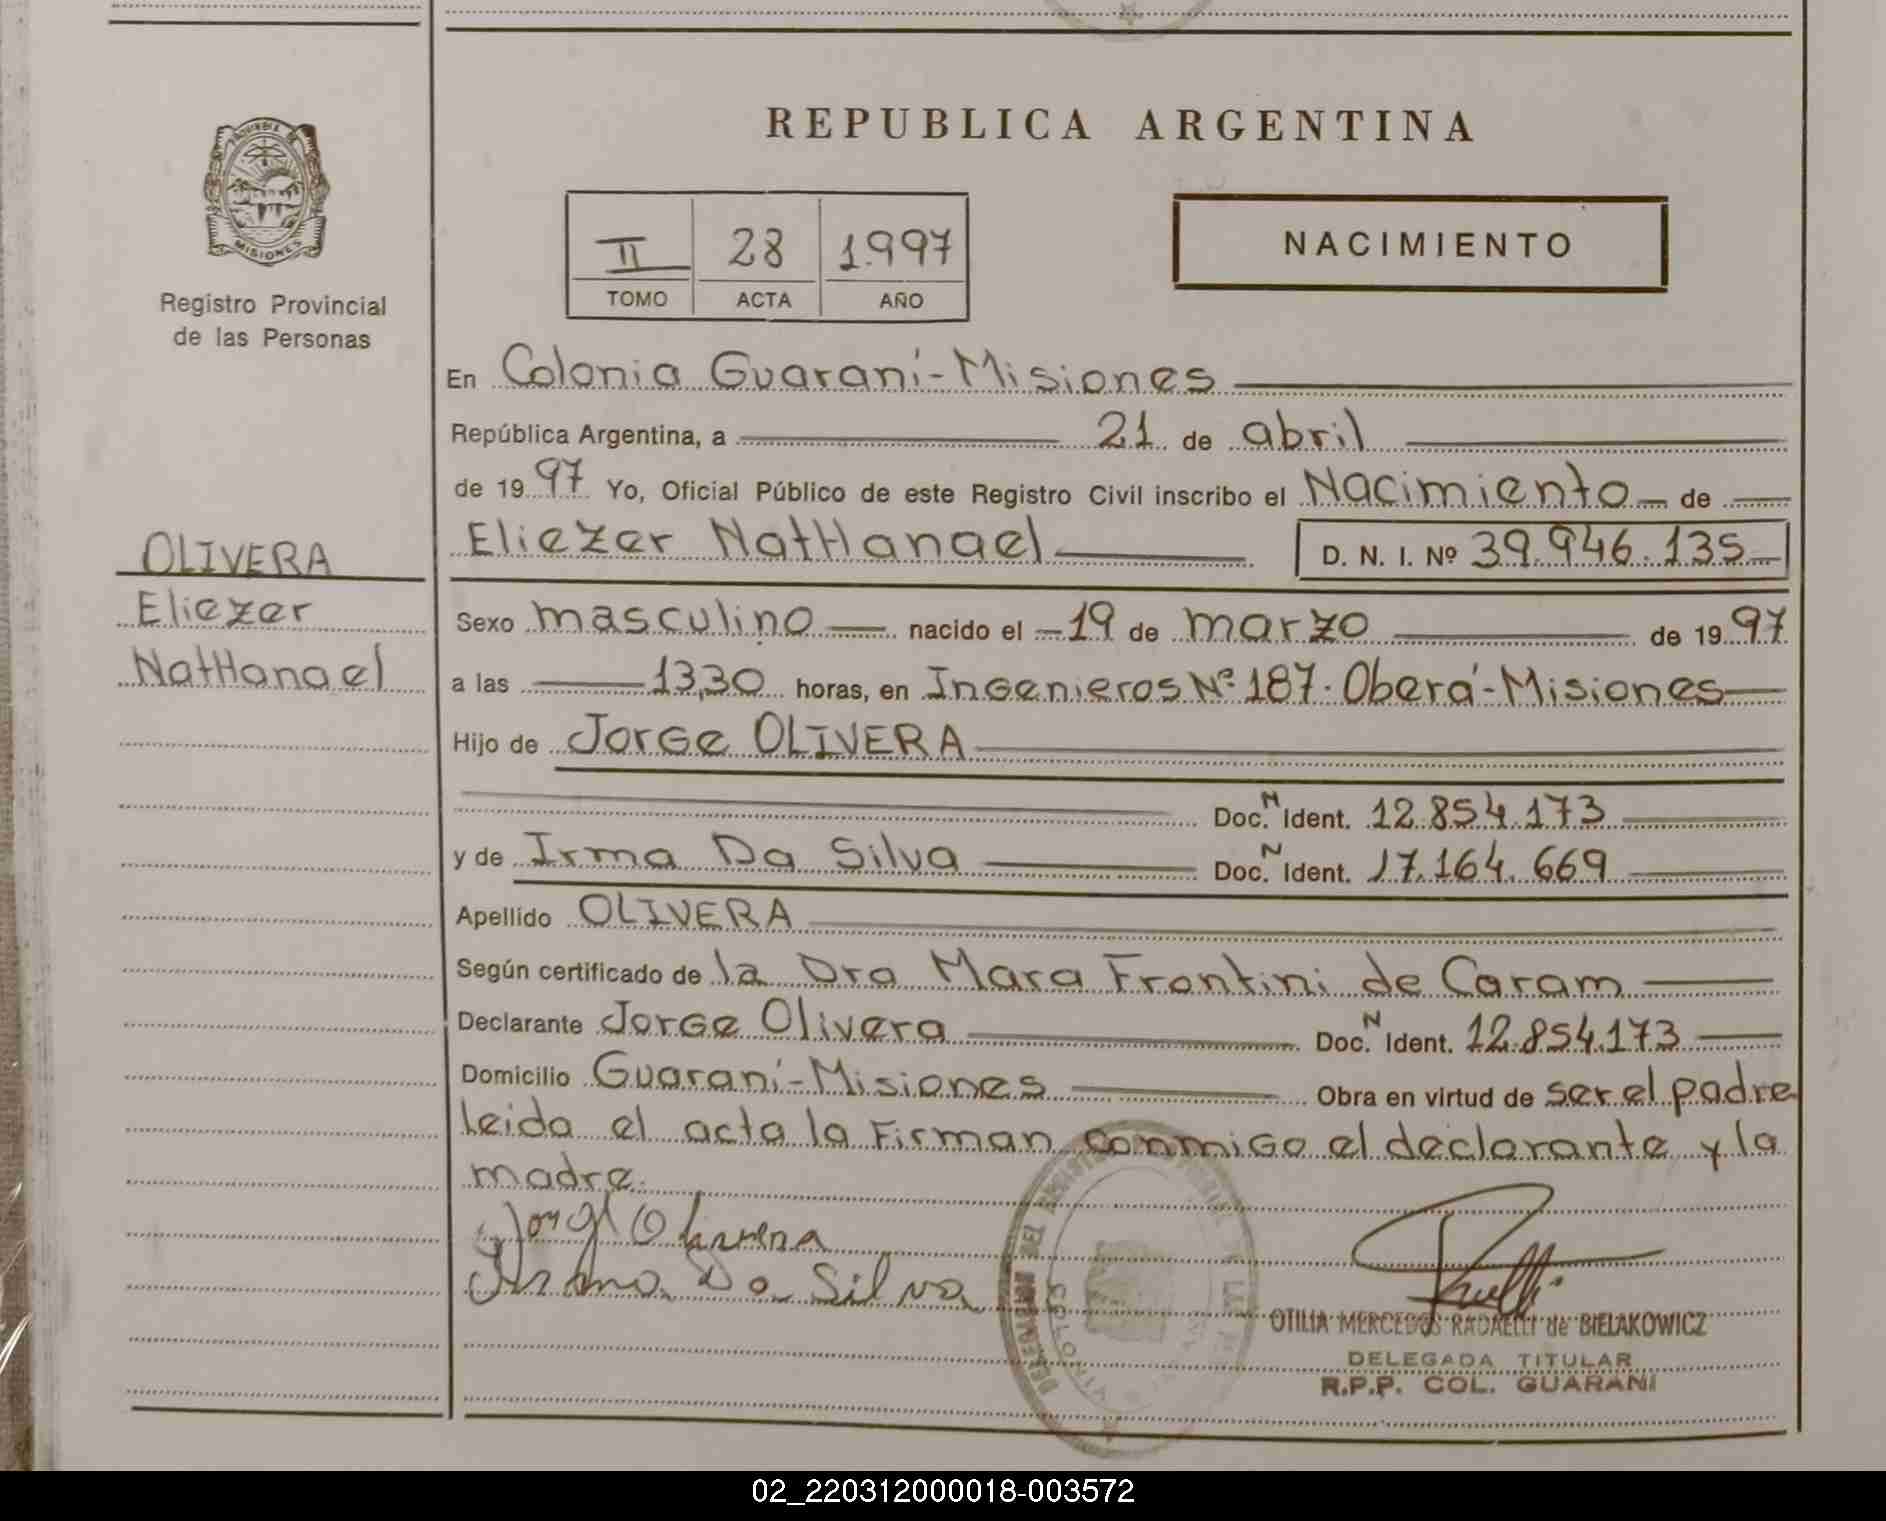 REPUBLICA ARGENTINA
PROVINCIA DE
MISIONES
Registro Provincial
de las Personas
II 28 1.997
TOMO ACTA AÑO
NACIMIENTO
En Colonia Guaraní-Misiones
República Argentina, a 21 de abril
de 1997 Yo, Oficial Público de este Registro Civil inscribo el Nacimiento de
Eliezer NatHanael D. N. I. Nº 39.946.135
OLIVERA
Eliezer
NatHanael
Sexo masculino nacido el 19 de marzo de 1997
a las 13,30 horas, en Ingenieros Nº 187. Oberá-Misiones
Hijo de Jorge OLIVERA
Doc. N Ident. 12.854.173
y de Irma Da Silva Doc. N Ident. 17.164.669
Apellido OLIVERA
Según certificado de la Dra Mara Frontini de Caram
Declarante Jorge Olivera Doc. N Ident. 12.854.173
Domicilio Guaraní-Misiones Obra en virtud de ser el padre
leida el acta la Firman conmigo el declarante y la
madre.
Jorge Olivera
Irma Da Silva
OTILIA MERCEDES RADAELLI de BIELAKOWICZ
DELEGADA TITULAR
R.P.P. COL. GUARANI
02_220312000018-003572